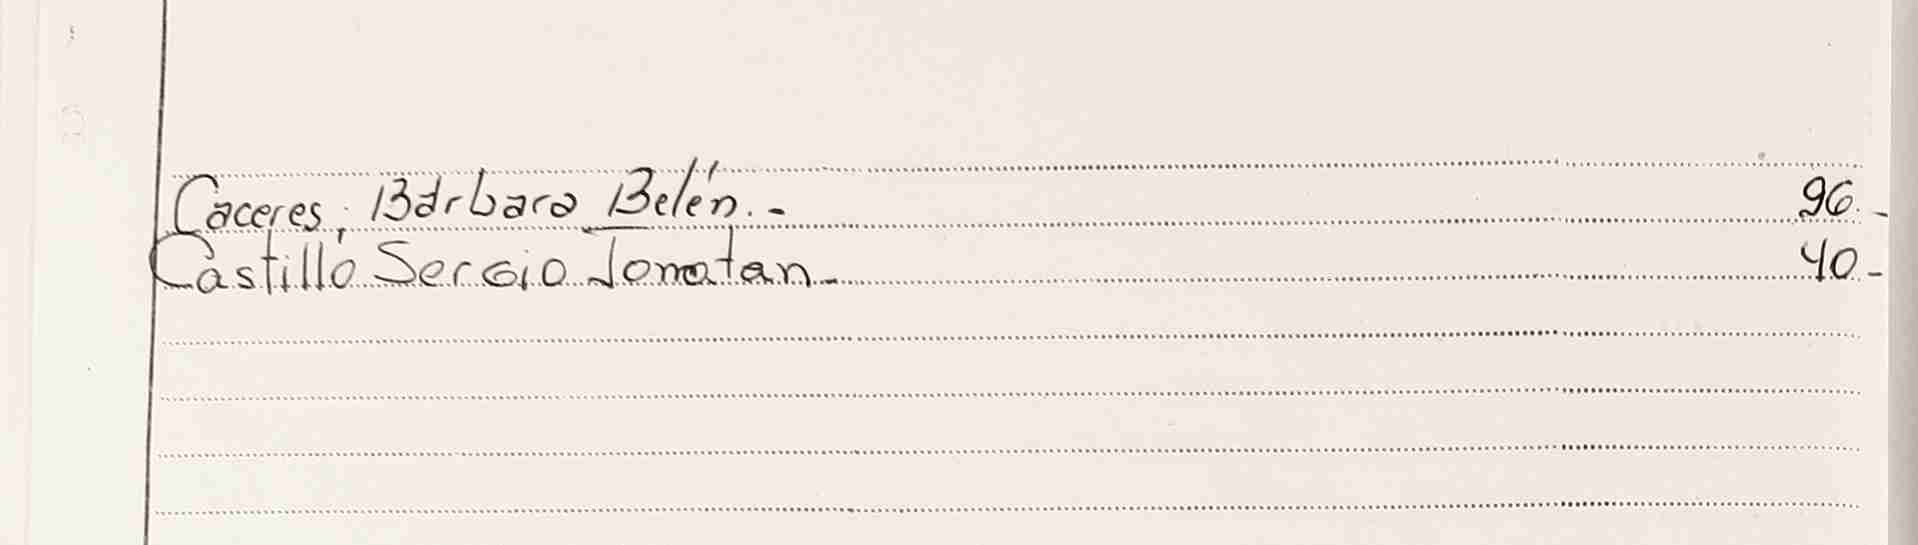 Caceres, Bárbara Belén.- 96.-
Castillo Sergio Jonatan- 40-